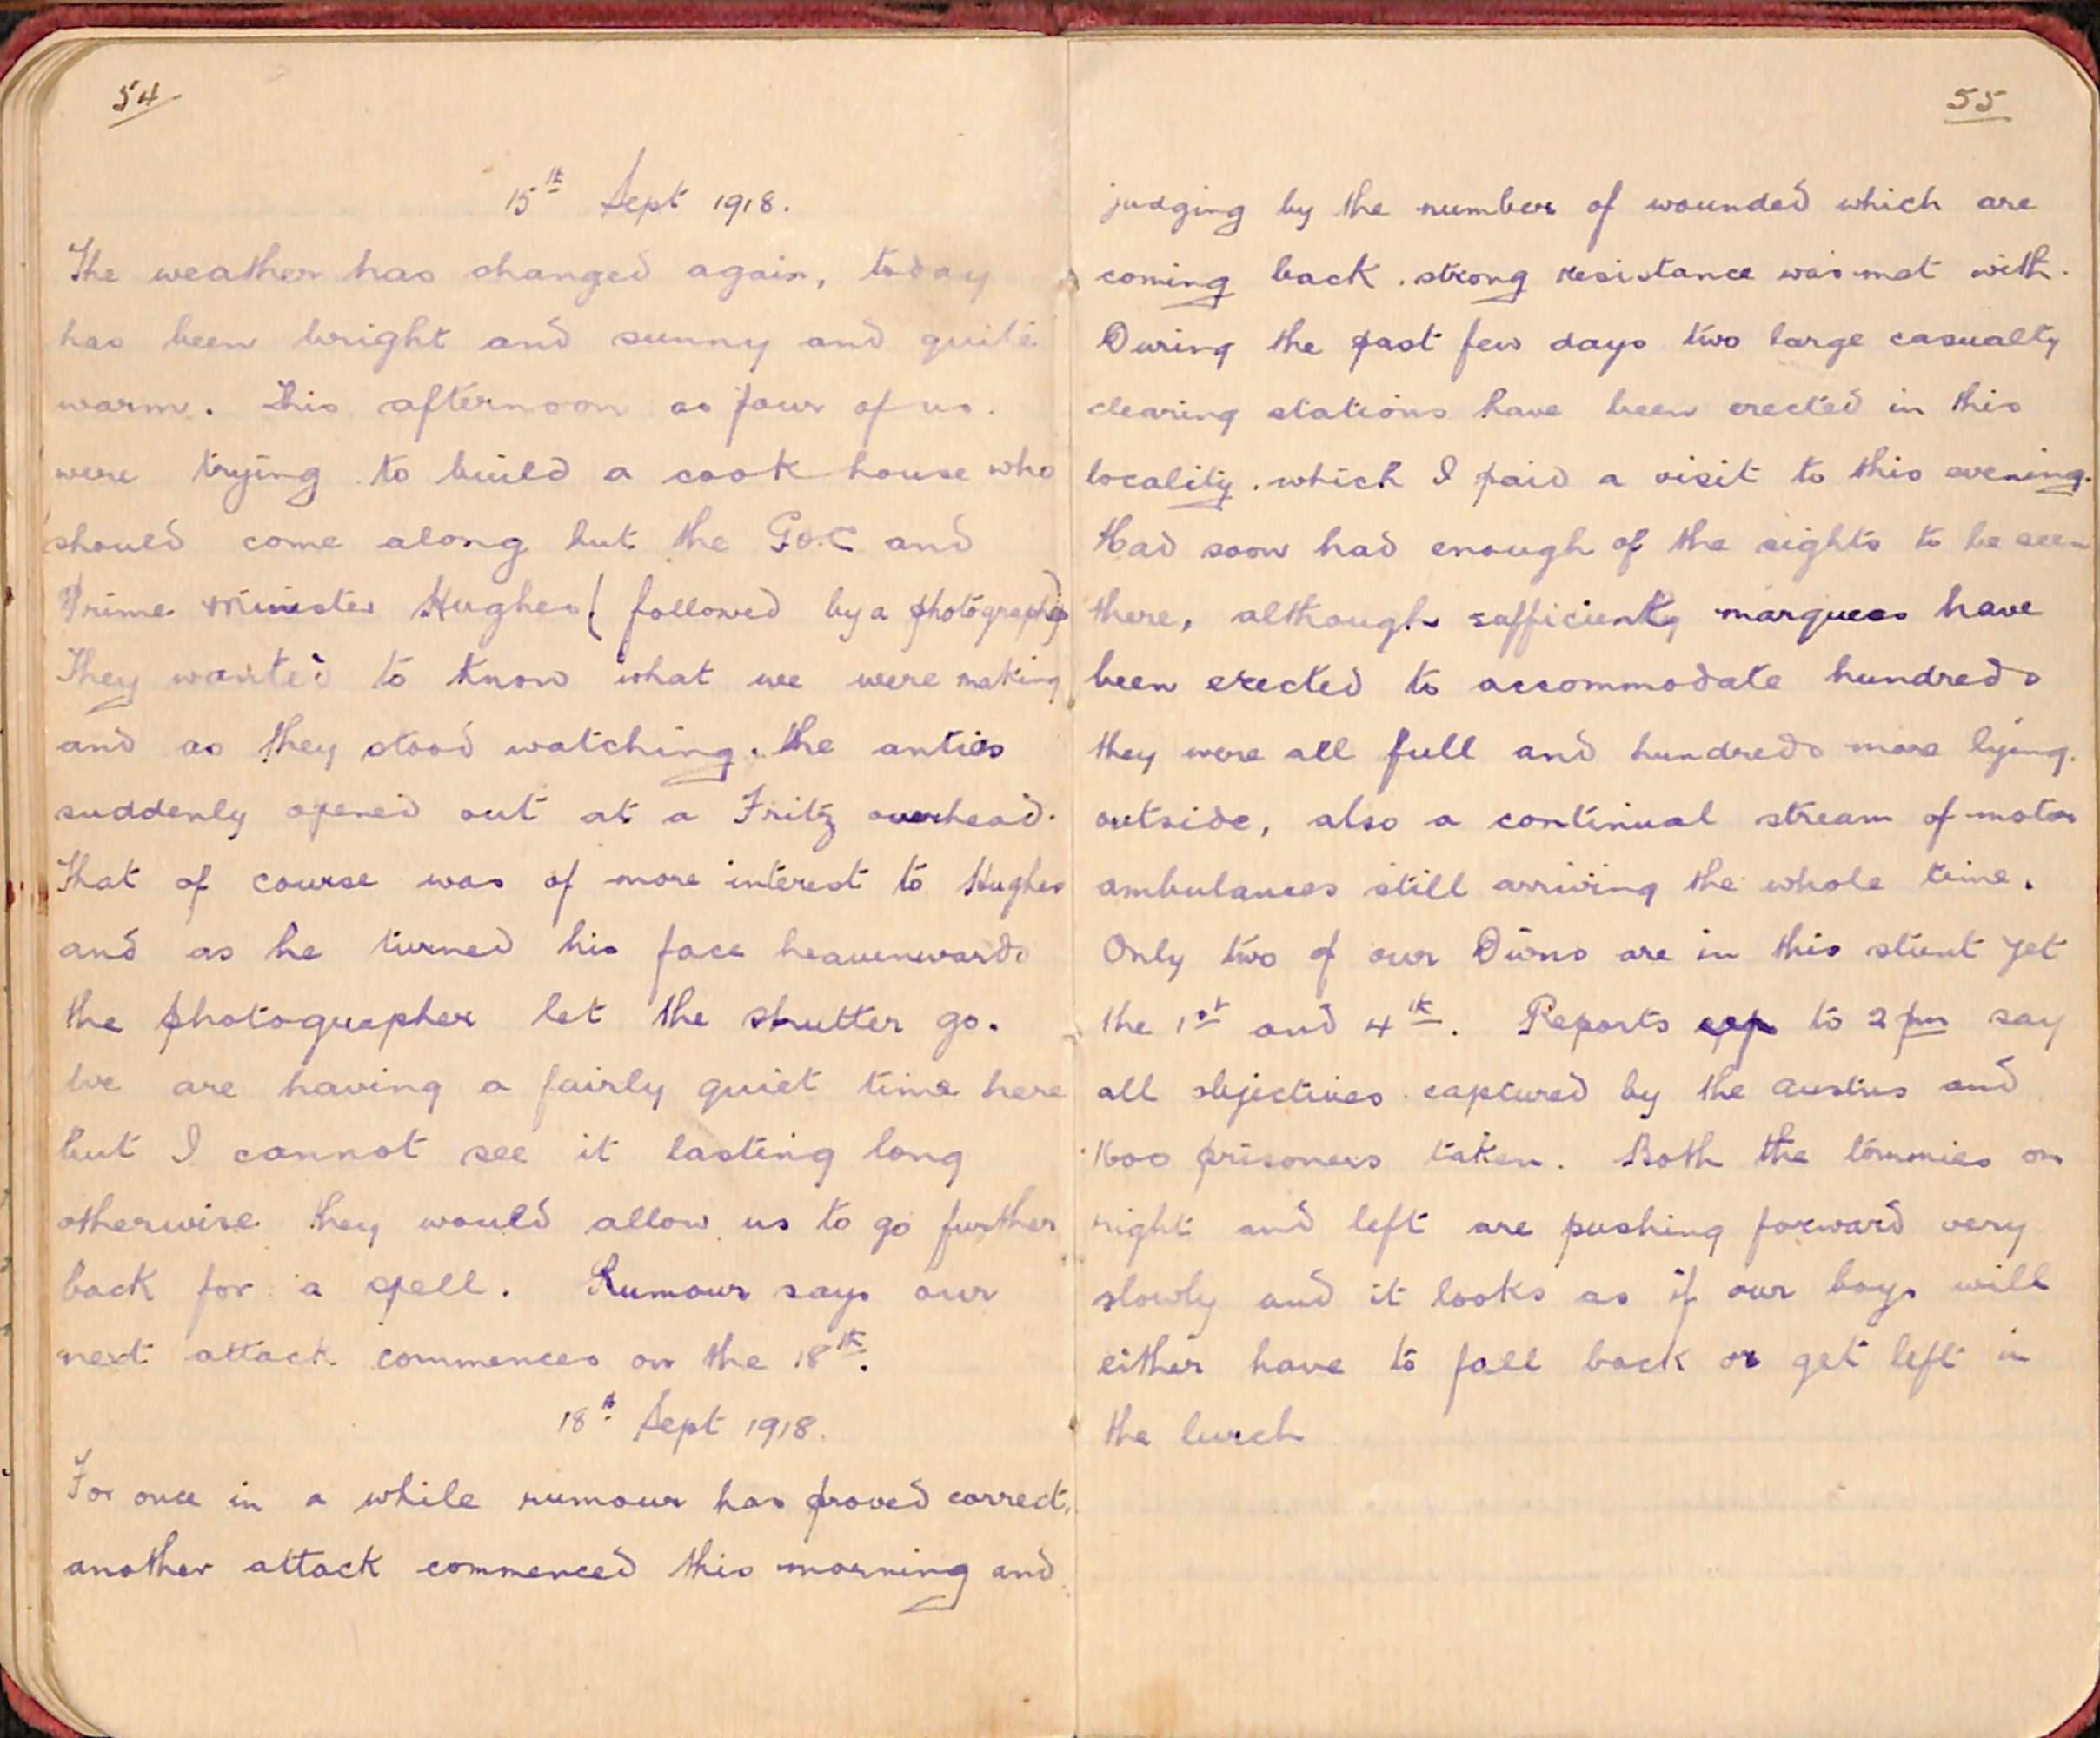 54
15th Sept 1918.
The weather has changed again, today
has been bright and sunny and quite
warm. This afternoon as four of us.
were trying to build a cook house who
should come along but the G.O.C and
Prime Minister Hughes (followed by a photographer)
They wanted to know what we were making
and as they stood watching. the anties
suddenly opened out at a Fritz overhead.
That of course was of more interest to Hughes
and as he turned his face heavenwards
the photographer let the shutter go.
We are having a fairly quiet time here
but I cannot see it lasting long
otherwise they would allow us to go further
back for a spell. Rumour says our
next attack commences on the 18th.
18th Sept 1918.
For once in a while rumour has proved correct,
another attack commenced this morning and
55
judging by the number of wounded which are
coming back. strong resistance was met with.
During the past few days two large casualty
clearing stations have been erected in this
locality. which I paid a visit to this evening.
Had soon had enough of the sights to be seen
there, although sufficiently marquees have
been erected to accommodate hundreds
they were all full and hundreds more lying.
outside, also a continual stream of motor
ambulances still arriving the whole time.
Only two of our Divns are in this stunt yet
the 1st and 4th. Reports up to 2 pm say
all objectives captured by the Austns and
1600 prisoners taken. Both the tommies on
right and left are pushing forward very
slowly and it looks as if our boys will
either have to fall back or get left in
the lurch